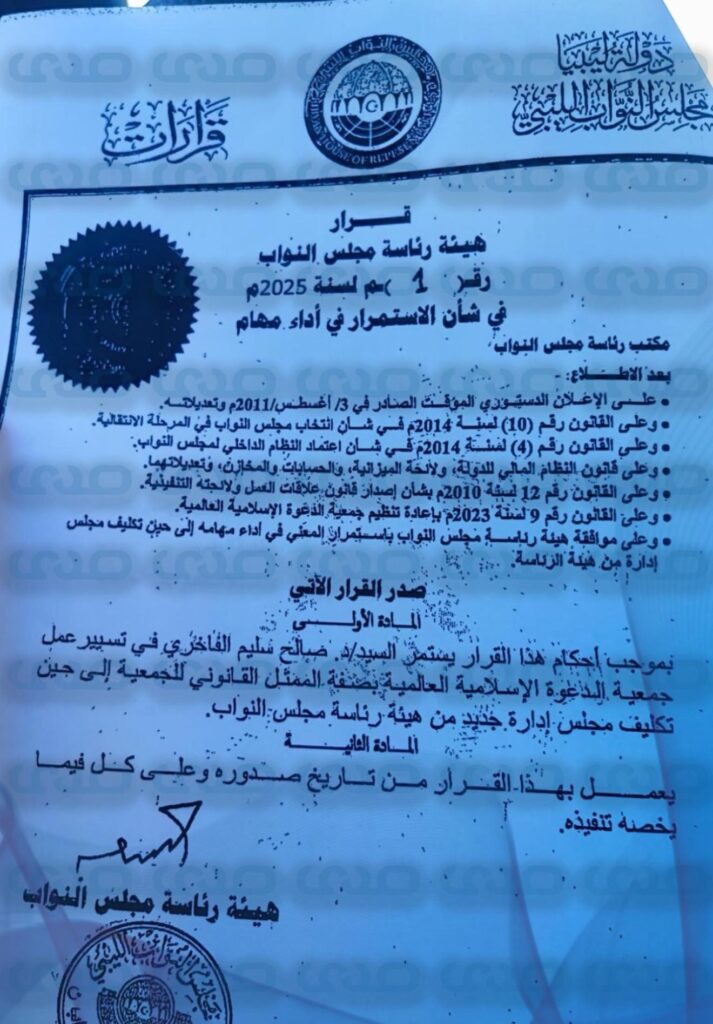 دولة ليبيا
مجلس النواب الليبي
قرارات
HOUSE OF REPRESE
قـــرار
هيئة رئاسة مجلس النواب
رقم ( 1 )م لسنة 2025م
في شأن الاستمرار في أداء مهام
مكتب رئاسة مجلس النواب
بعد الاطـــلاع: -
• علـى الإعلان الدستوري المؤقت الصادر في 3/ أغسطس/2011م وتعديلاته.
• وعلى القانون رقم (10) لسنة 2014م في شأن انتخاب مجلس النواب في المرحلة الانتقالية.
• وعلى القانون رقم (4) لسنة 2014م في شأن اعتماد النظام الداخلي لمجلس النواب.
• وعلى قانون النظام المالي للدولة، ولائحة الميزانية، والحسابات والمخازن، وتعديلاتهما.
• وعلى القانون رقم 12 لسنة 2010م بشأن إصدار قانون علاقات العمل ولائحتة التنفيذية.
• وعلى القانون رقم 9 لسنة 2023م بإعادة تنظيم جمعية الدعوة الإسلامية العالمية.
• وعلى موافقة هيئة رئاسة مجلس النواب باستمرار المعني في أداء مهامه إلى حين تكليف مجلس
إدارة من هيئة الرئاسة.
صدر القرار الآتي
المادة الأولــى
بموجب أحكام هذا القرار يستمر السيد/د. صالح سليم الفاخري في تسيير عمل
جمعية الدعوة الإسلامية العالمية بصفة الممثل القانوني للجمعية إلى حين
تكليف مجلس إدارة جديد من هيئة رئاسة مجلس النواب.
المادة الثانيـــة
يعمـــل بهذا القـرار من تاريخ صدوره وعلى كل فيما
يخصه تنفيذه.
هيئة رئاسة مجلس النواب
مجلس النواب الليبي
صدى